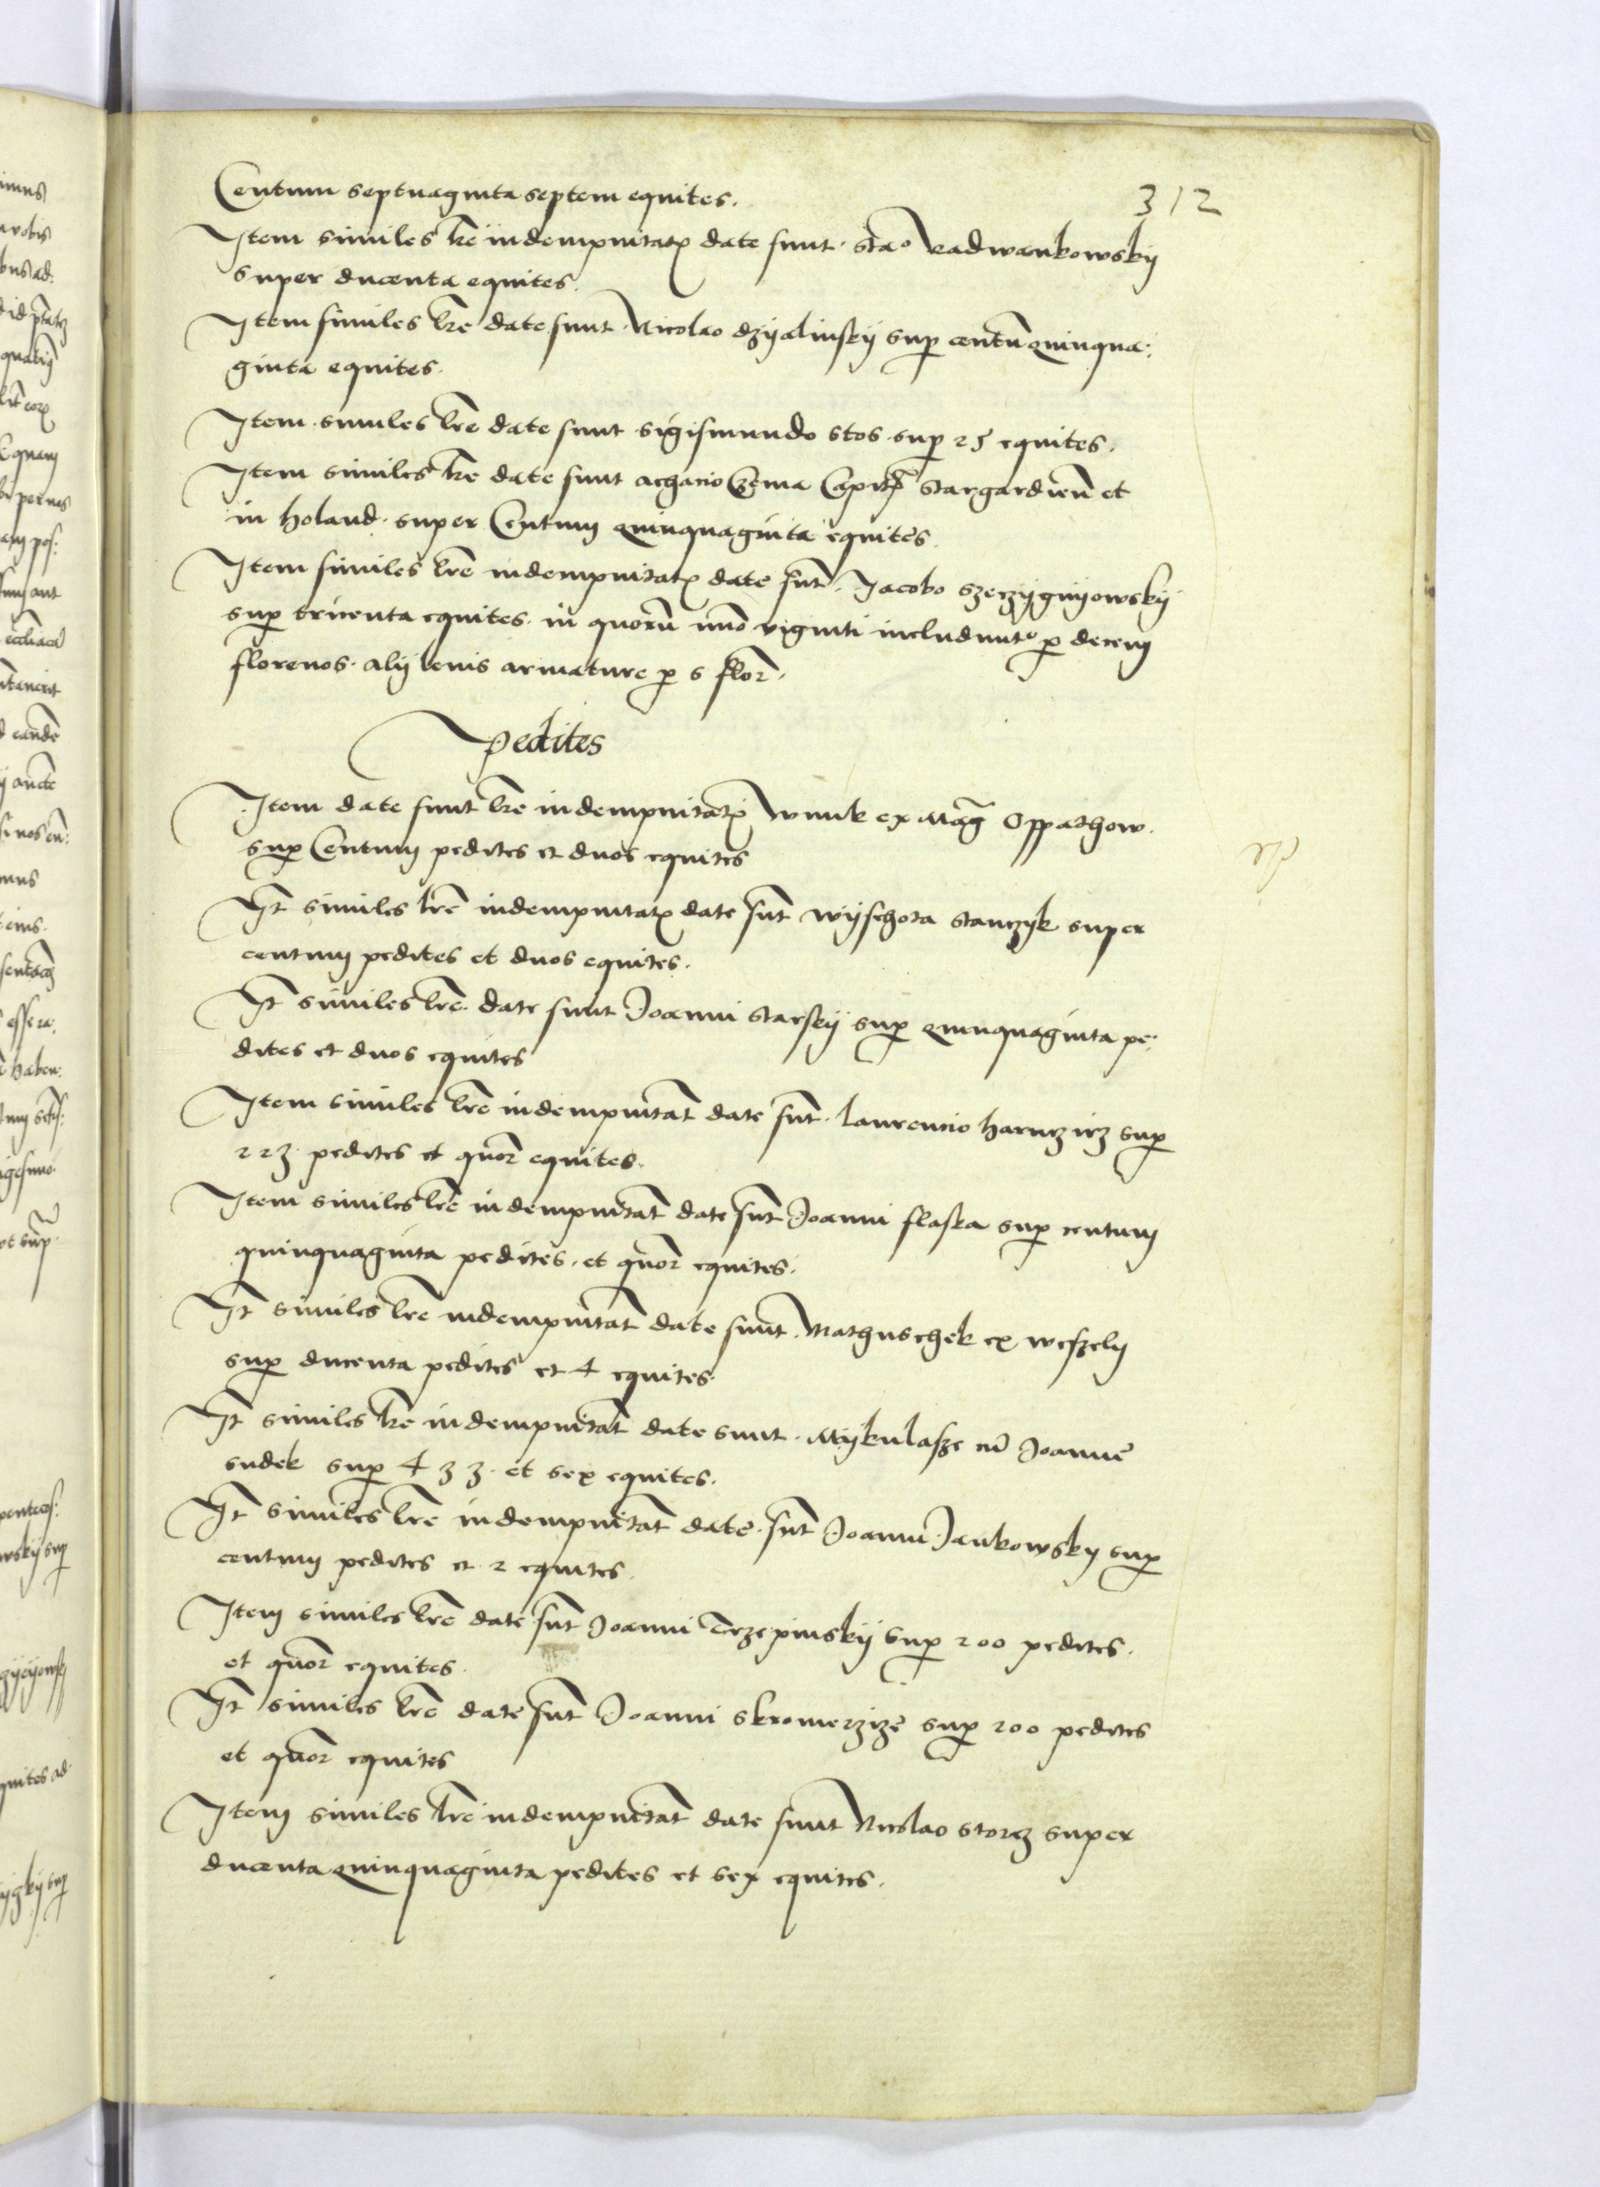 312
Centum septuaginta septem equites.
Item similes lrē indempnitatꝭ date sunt. stao Radwankowskij
super ducenta equites.
Item similes lrē date sunt. Nicolao dzyalinskij sup centū quinqua:
ginta equites.
Item similes lrē date sunt sigismundo stos sup 25 equites.
Item similes lrē date sunt achacio Czema Capitō Stargardieñ et
in holand. super Centum quinquaginta equites.
Item similes lrē indempnitatꝭ date sūt. Jacobo
sup tricenta equites. in quorū nūo viginti includuntr p decem
florenos. alij levis armature p 5 flor.
pedites
Item date sunt lrē indempnitatꝭ Wnuk ex Mag Oppathow.
sup Centum pedites et duos equites
It similes lrē indempnitatꝭ date sūt Wyschota stanczyk super
centum pedites et duos equites.
It similes lrē date sunt Joanni Starskij sup quinquaginta pe:
dites et duos equites
Item similes lrē indempnitat date sūt. laurencio harnczirz sup
223. pedites et quor equites.
Item similes lrē indempnitat date sūt Joanni flaska sup centum
quinquaginta pedites. et quor equites.
It similes lrē indempnitat date sunt. Mathuschek ex weszely
sup ducenta pedites et 4 equites.
It similes lrē indempnitat date sunt. Mykulasze cū Joanne
sudek sup 433. et sex equites.
It similes lrē indempnitat date. sūt Joanni Jankowsky sup
centum pedites et 2 equites.
Item similes lrē date sūt Joanni Trzepinskij sup 200 pedites.
et quor equites.
It similes lrē date sūt Joanni sup 200 pedites
et quor equites
Item similes lrē indempnitat date sunt Nicolao storcz super
ducenta quinquaginta pedites et sex equites.